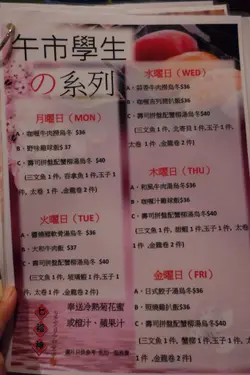 午市學生
の系列
月曜日（MON）
A、咖喱牛肉撈烏冬 $36
B、野味雞球飯 $37
C、壽司拼盤配蟹柳湯烏冬$40
（三文魚 1 件，谷拿魚 1 件，玉子 1 件，
太卷 1 件 ,金龍卷 2 件）
火曜日（TUE）
A、
B、大和牛肉飯 $37
C、壽司拼盤配蟹柳湯烏冬 $40
（三文魚 1 件，玉子 1 件，
太卷 1 件 ,金龍卷 2 件）
水曜日（WED）
A、蒜香牛肉撈烏冬 $36
B、咖喱吉列豬扒飯 $36
C、壽司拼盤配蟹柳湯烏冬 $40
（三文魚 1 件，北寄貝 1 件，玉子 1 件，
太卷 1 件 ,金龍卷 2 件）
木曜日（THU）
A、和風牛肉湯烏冬 $36
B、
C、壽司拼盤配蟹柳湯烏冬 $40
（三文魚 1 件，甜蝦 1 件，玉子 1 件，太
卷 1 件 ,金龍卷 2 件）
金曜日（FRI）
A、日式餃子湯烏冬 $36
B、照燒雞扒飯 $36
C、壽司拼盤配蟹柳湯烏冬 $40
（三文魚 1 件，蟹柳 1 件，玉子 1 件，太卷
1 件 ,金龍卷 2 件）
奉送冷熱菊花蜜
或橙汁、蘋果汁